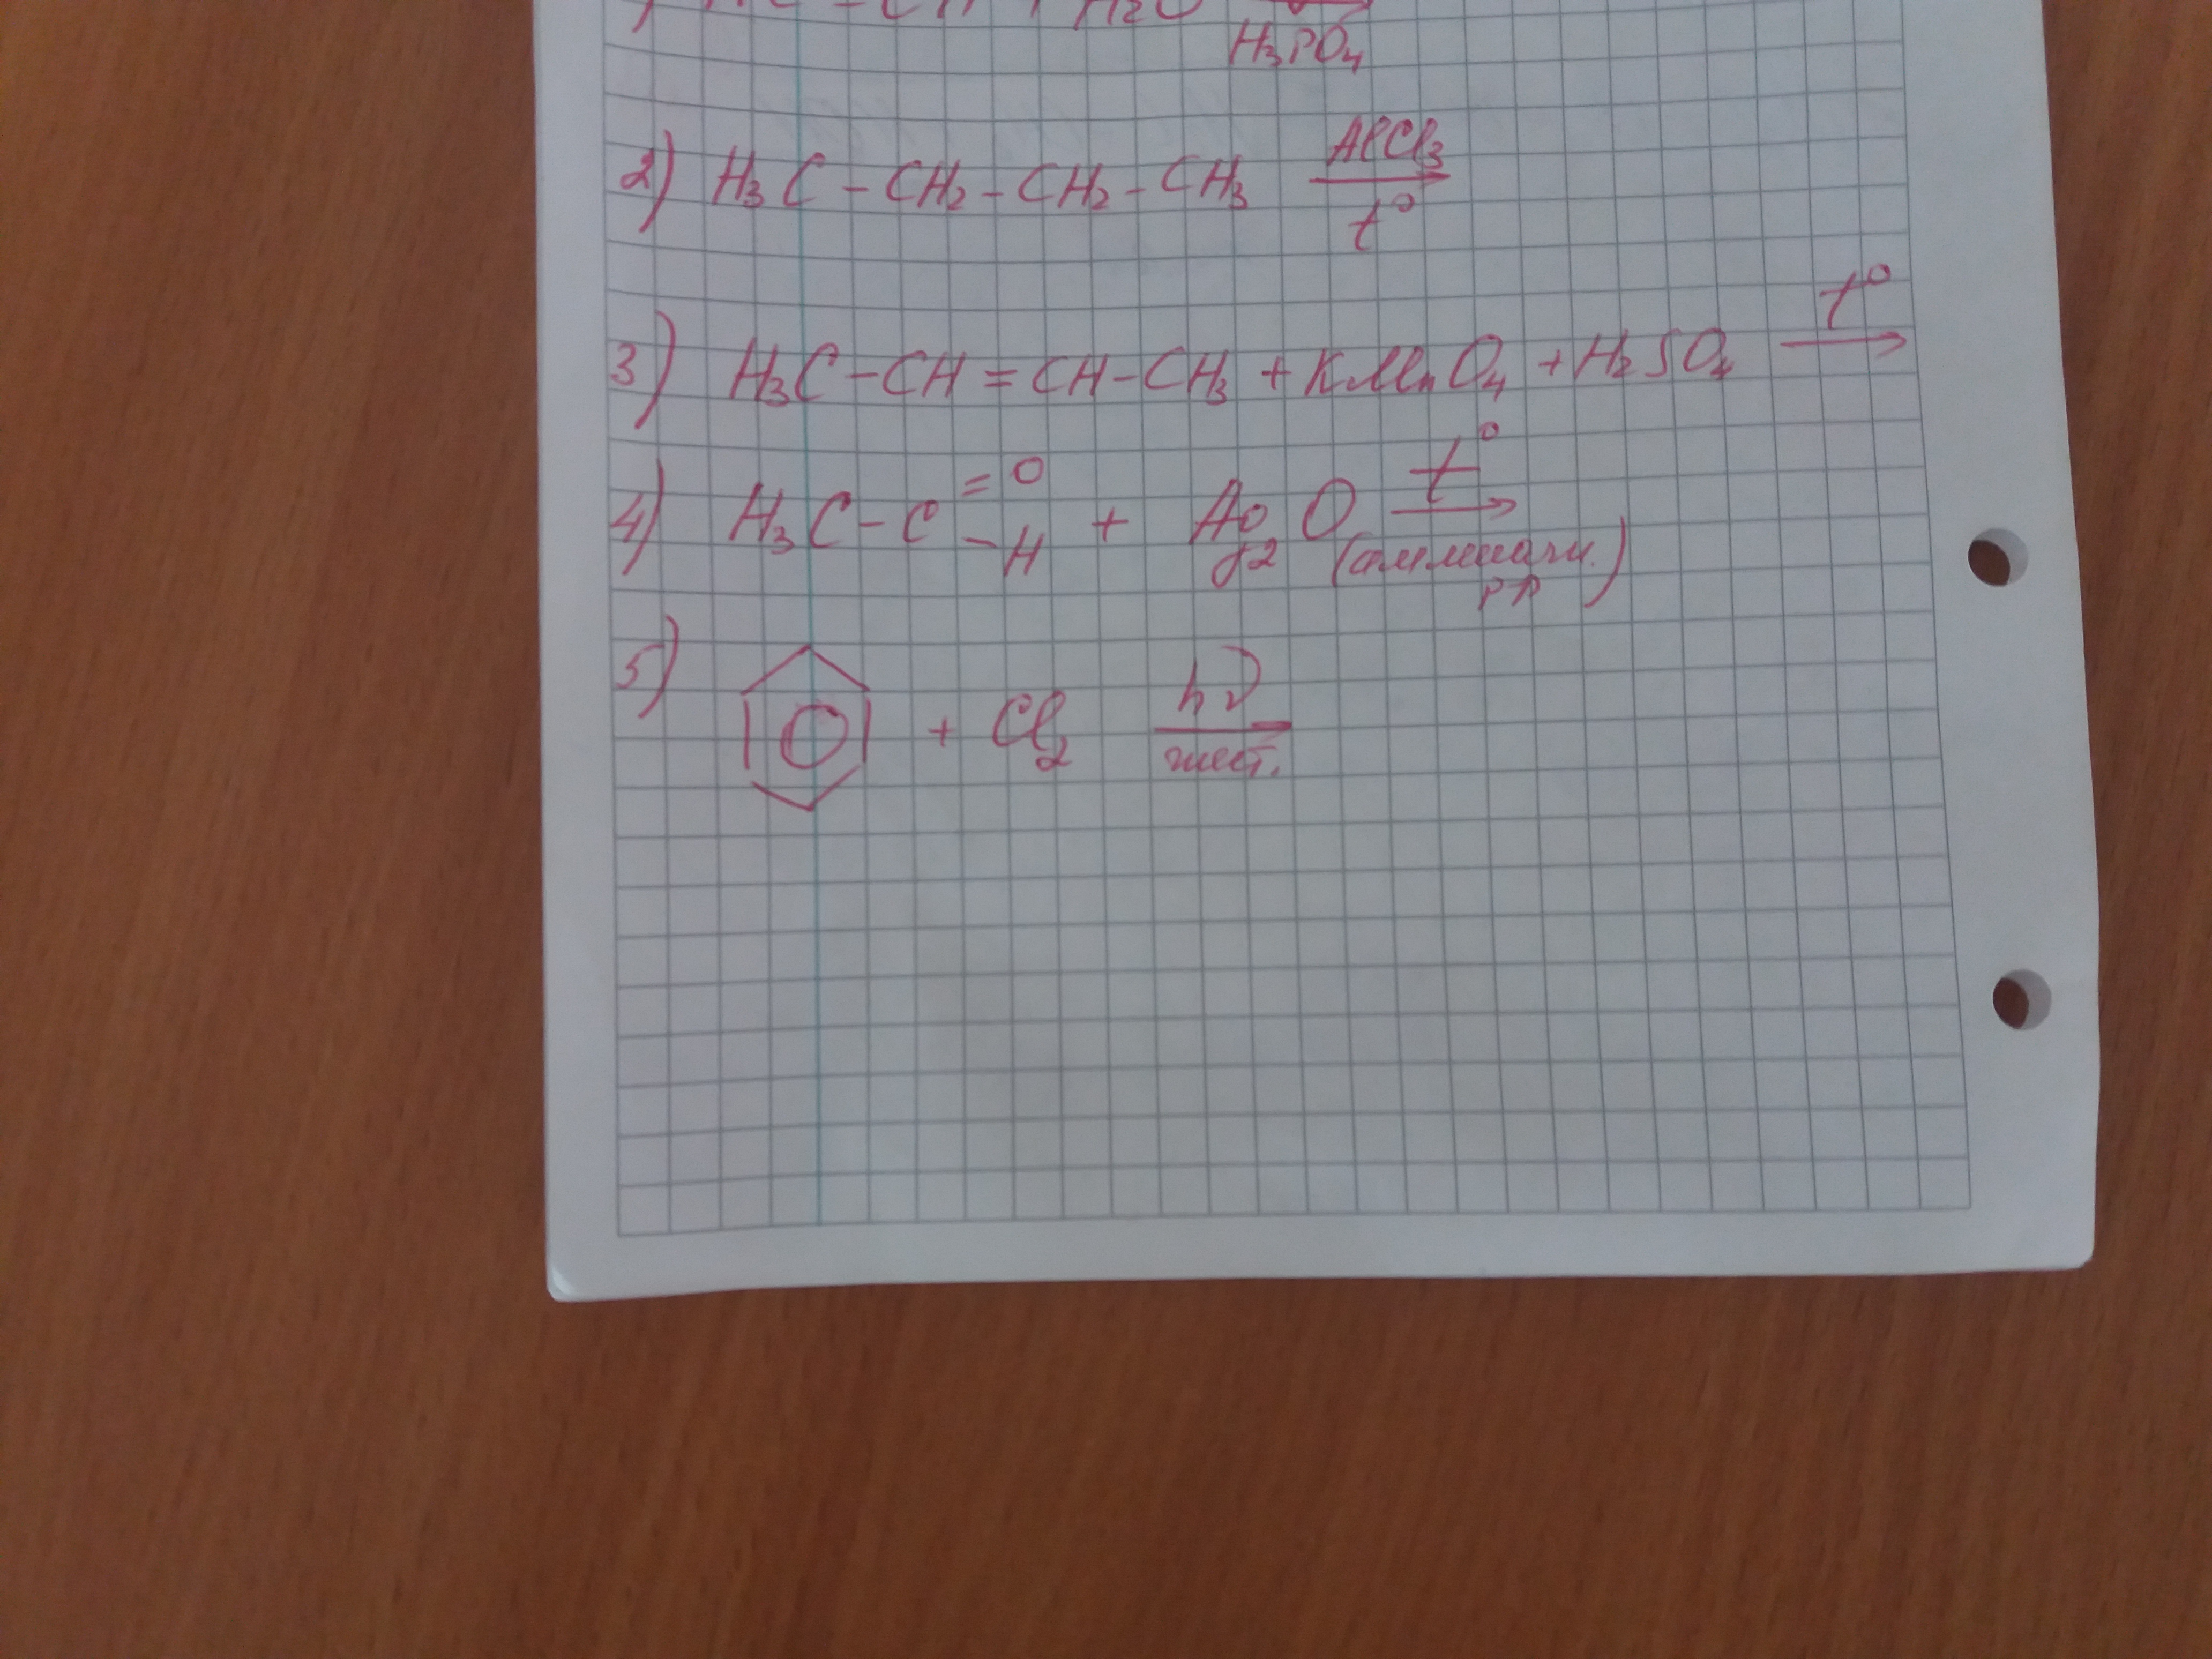 H₃PO₄
2) H₃C-CH₂-CH₂-CH₃ AlCl₃ t°
3) H₃C-CH=CH-CH₃+KMnO₄+H₂SO₄ t° →
4) H₃C-C =O -H + Ag₂O t° → (аммиачн. р-р)
5) + Cl₂ hν жест.